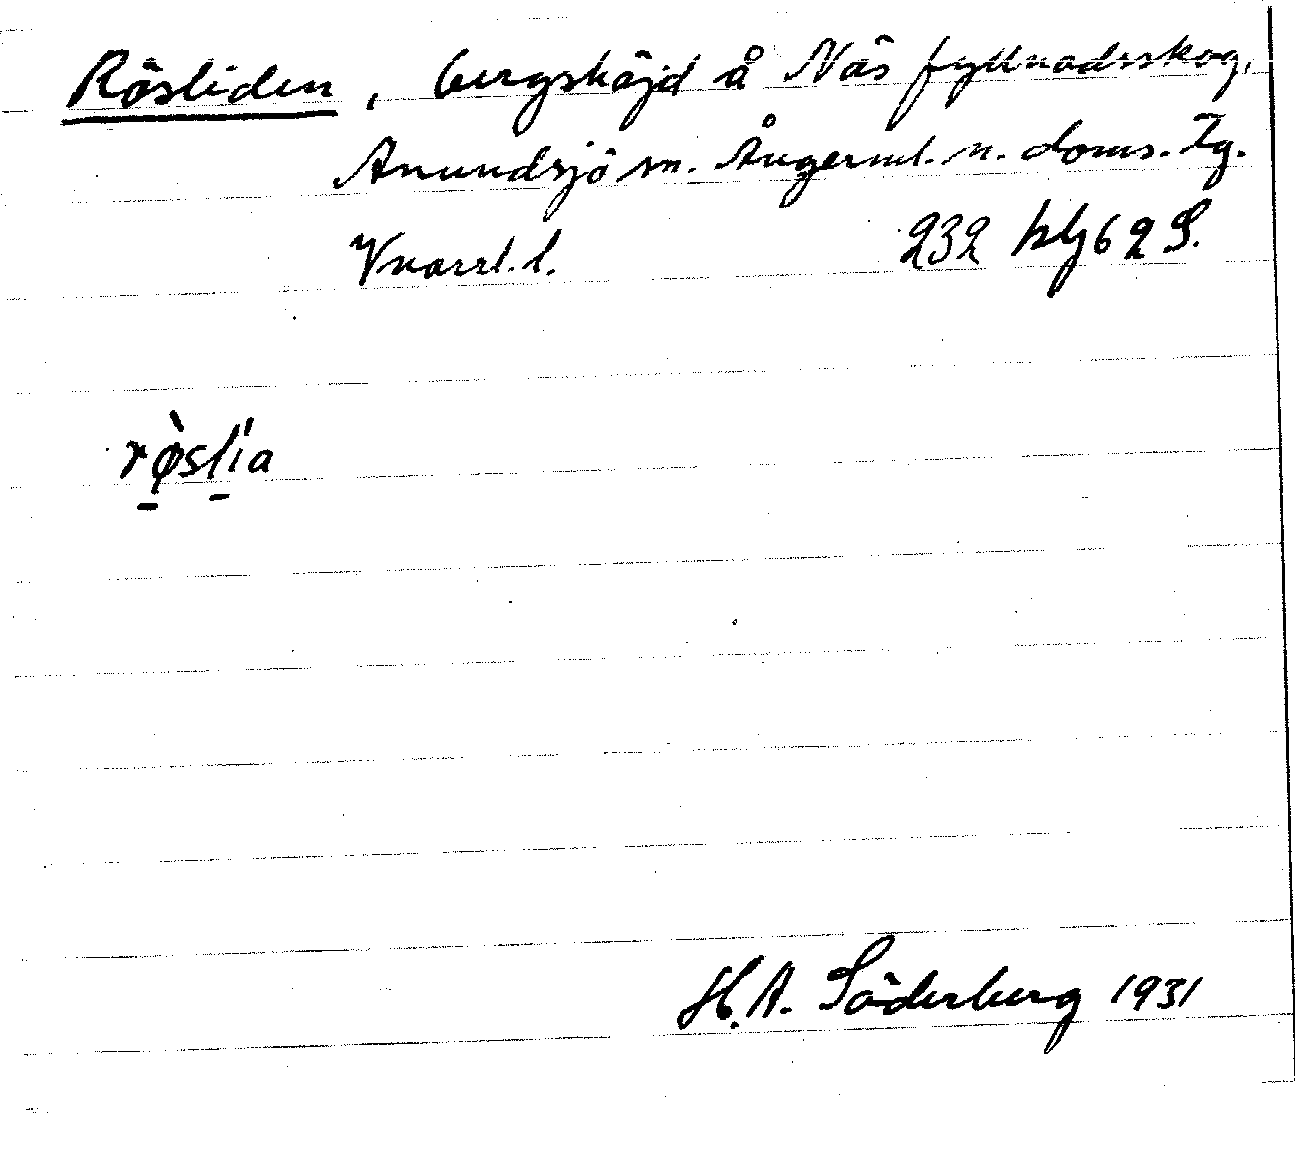 Rösliden, bergshöjd å Näs fyllnadsskog,
Anundsjö sn. Ångerml. n. doms. Tg.
Vnorrl. l. 232 hlg 62 S.
rø̀slia
H. A. Söderberg 1931